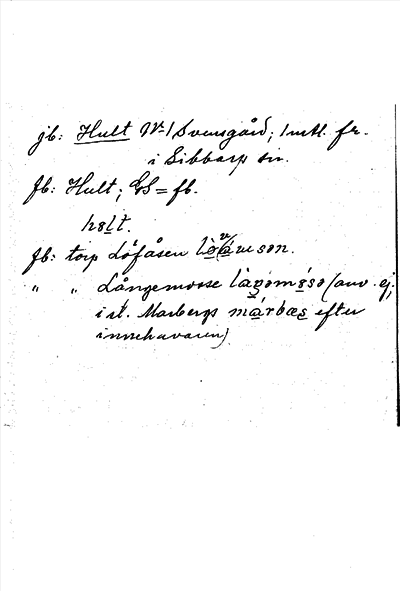 jb: Hult No 1 Svensgård; 1 mtl. fr.
i Sibbarp sn.
fb: Hult; GS = fb.
hɵlt.
fb: torp Löfåsen
" " Långemosse (anv. ej,
i st. Marbergs efter
innehavaren)